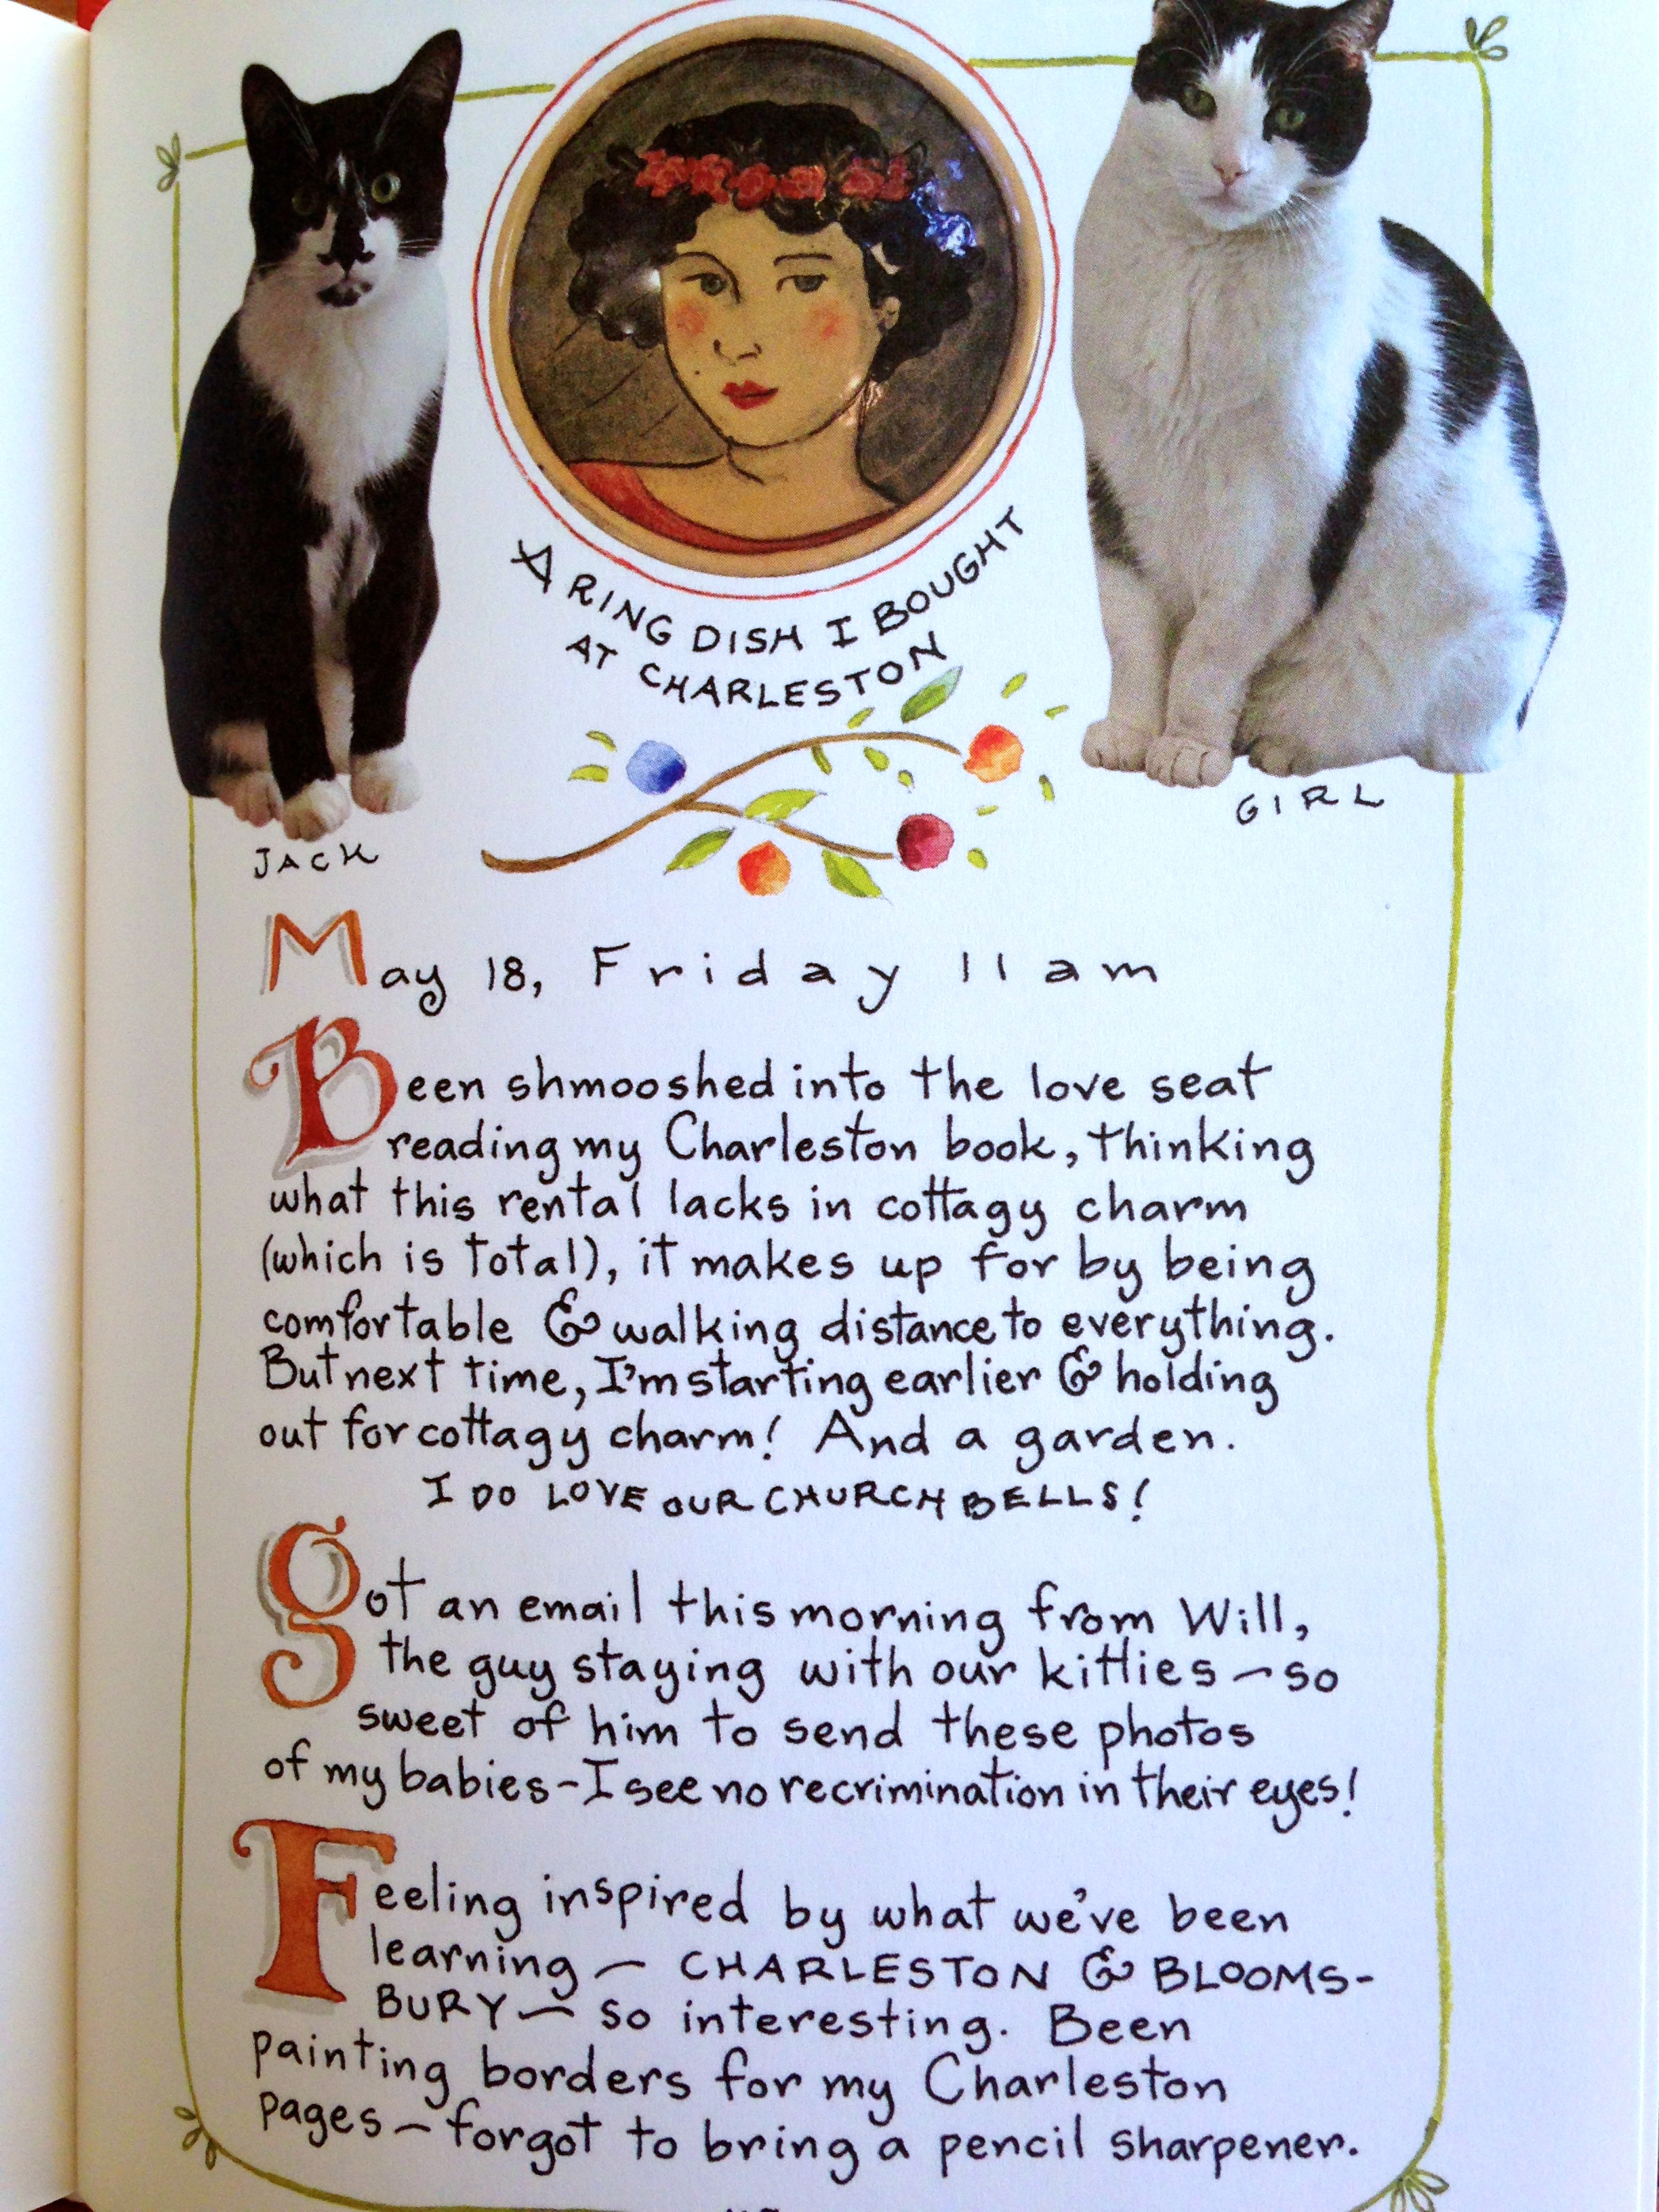 A RING DISH I BOUGHT
AT CHARLESTON
JACK
GIRL
May 18, Friday 11am
Been shmooshed into the love seat
reading my Charleston book, thinking
what this rental lacks in cottagy charm
(which is total), it makes up for by being
comfortable & walking distance to everything.
But next time, I'm starting earlier & holding
out for cottagy charm! And a garden.
I DO LOVE OUR CHURCH BELLS!
Got an email this morning from Will,
the guy staying with our kitties – so
sweet of him to send these photos
of my babies – I see no recrimination in their eyes!
Feeling inspired by what we've been
learning – CHARLESTON & BLOOMS-
BURY – so interesting. Been
painting borders for my Charleston
pages – forgot to bring a pencil sharpener.